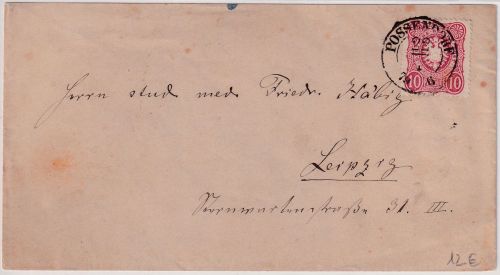 POSSENDORF
10 10
Herrn stud med Friedr. Häbig
Leipzig
Sternwartenstraße 31. III.
12 E